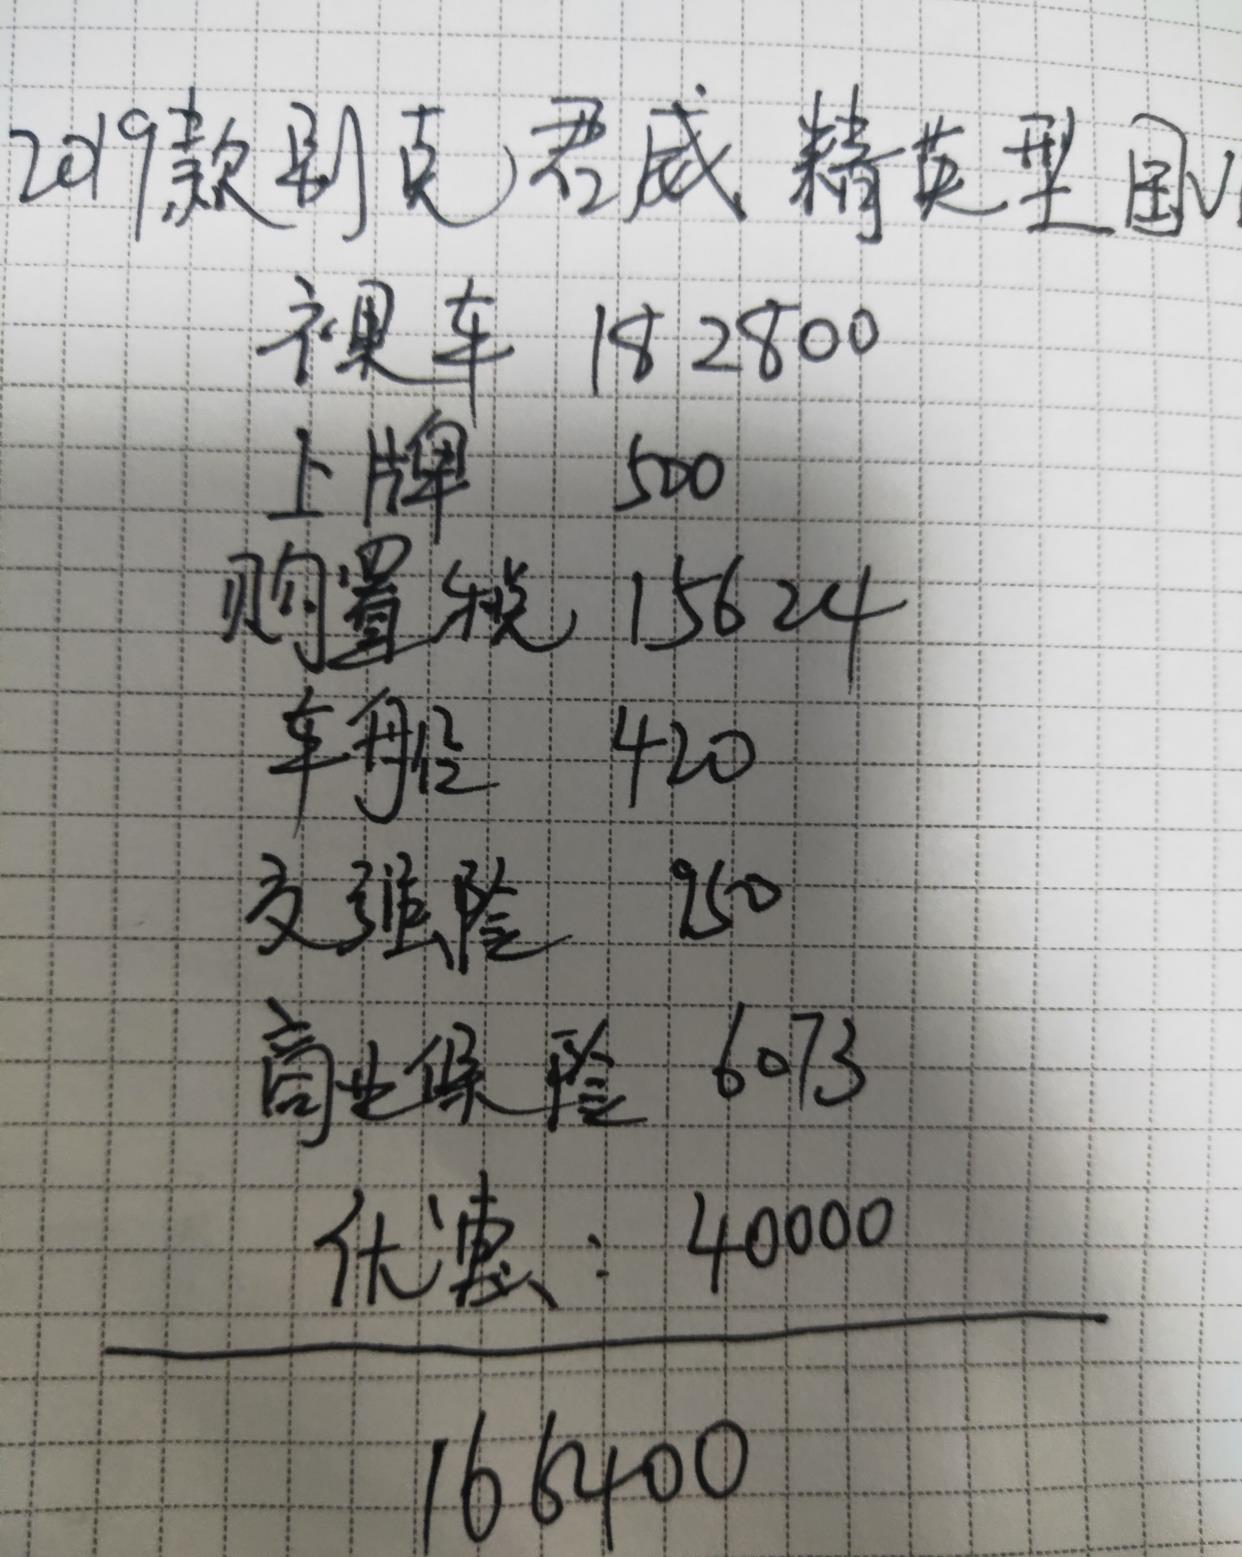 2019款别克君威精英型国VI
裸车 182800
上牌 500
购置税 15624
车船 420
交强险 950
商业保险 6073
优惠: 40000
166400